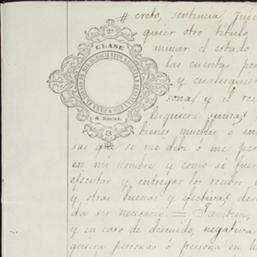 # creto, sentencias, juici
quier otro titulo
minar el estado
las cuentas pen
y cualesquier
sonas y al rec
lesquiera sumas
bienes muebles ó inm
sas que se me debe ó me per
en mi nombre y como si fuer
ejecutar y entregar los recibos,
y, otras buenas y efectivas des
da ser necesario = Tambien,
y en caso de descuido, negativa
quiera personas ó persona en
2ª
CLASE
3